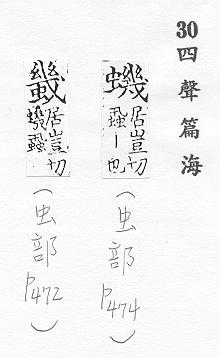 30 四聲篇海
蟣 居豈切
蝨丨也
(虫部
P474)
居豈切
蟣蝨
(虫部
P472)